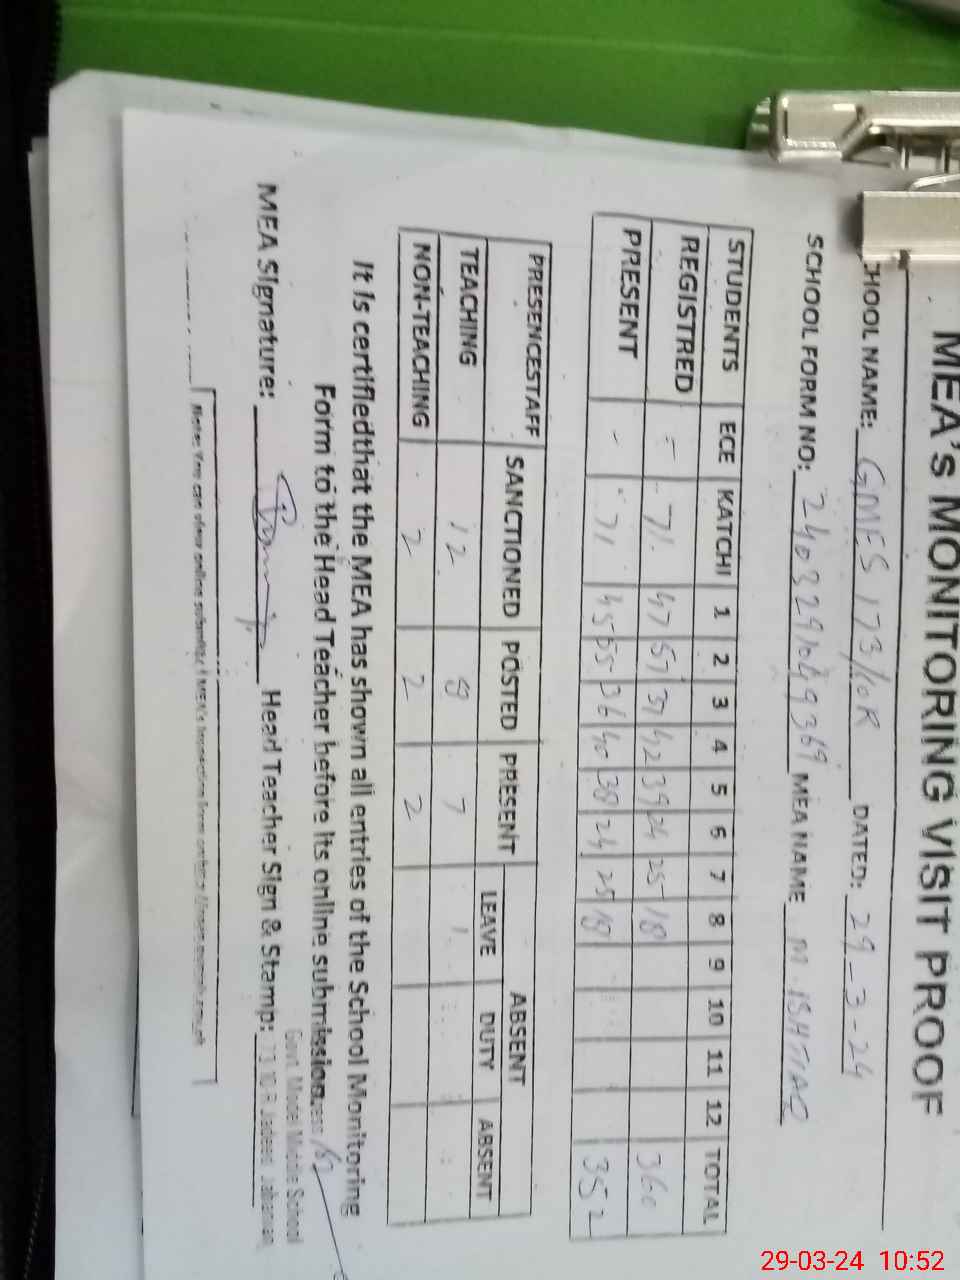 MEA's MONITORING VISIT PROOF
CHOOL NAME: GMES 173/10R DATED: 29-3-24
SCHOOL FORM NO: MEA NAME M. ISHTIAQ
STUDENTS ECE KATCHI 1 2 3 4 5 6 7 8 9 10 11 12 TOTAL
REGISTRED - 71 47 57 37 42 39 24 25 18 360
PRESENT - 71 45 55 36 40 38 24 25 18 352
PRESENCESTAFF SANCTIONED POSTED PRESENT ABSENT
LEAVE DUTY ABSENT
TEACHING 12 8 7 1
NON-TEACHING 2 2 2
It is certifiedthat the MEA has shown all entries of the School Monitoring
Form to the Head Teacher before its online submission.
MEA Signature: Head Teacher Sign & Stamp:
Govt. Model Middle School
10 R Jadeed
Note: You can show online submitted MEA's Inspection form
29-03-24 10:52